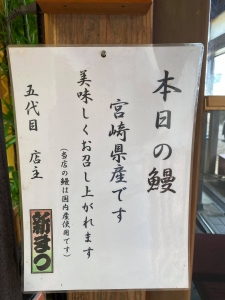 本日の鰻
宮崎県産です
美味しくお召し上がれます
（当店の鰻は国内産使用です）
五代目　店主
新まつ